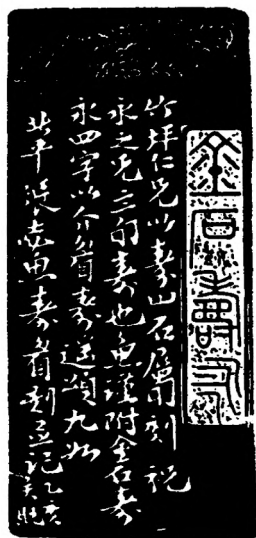 金石壽永
竹坪仁兄以壽山石屬刻 祝
永之兄三旬壽也魚謹附金石壽
永四字以介眉壽頌九如
北平魚壽眉刻並記乙亥